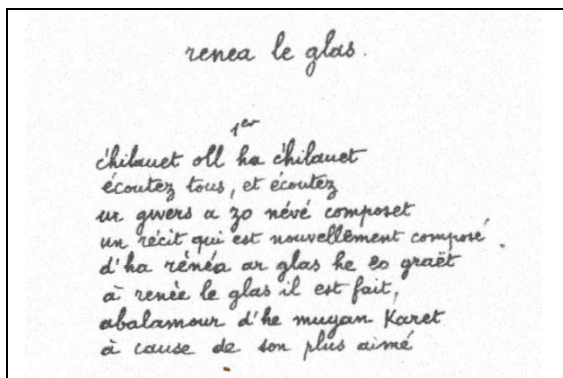 renea le glas.
1er
c'hilauet oll ha c'hilauet
écoutez tous, et écoutez
ur gwers a zo névé composet
un récit qui est nouvellement composé.
d'ha rénéa ar glas he eo graët
à renée le glas il est fait,
abalamour d'he muyan Karet
à cause de son plus aimé